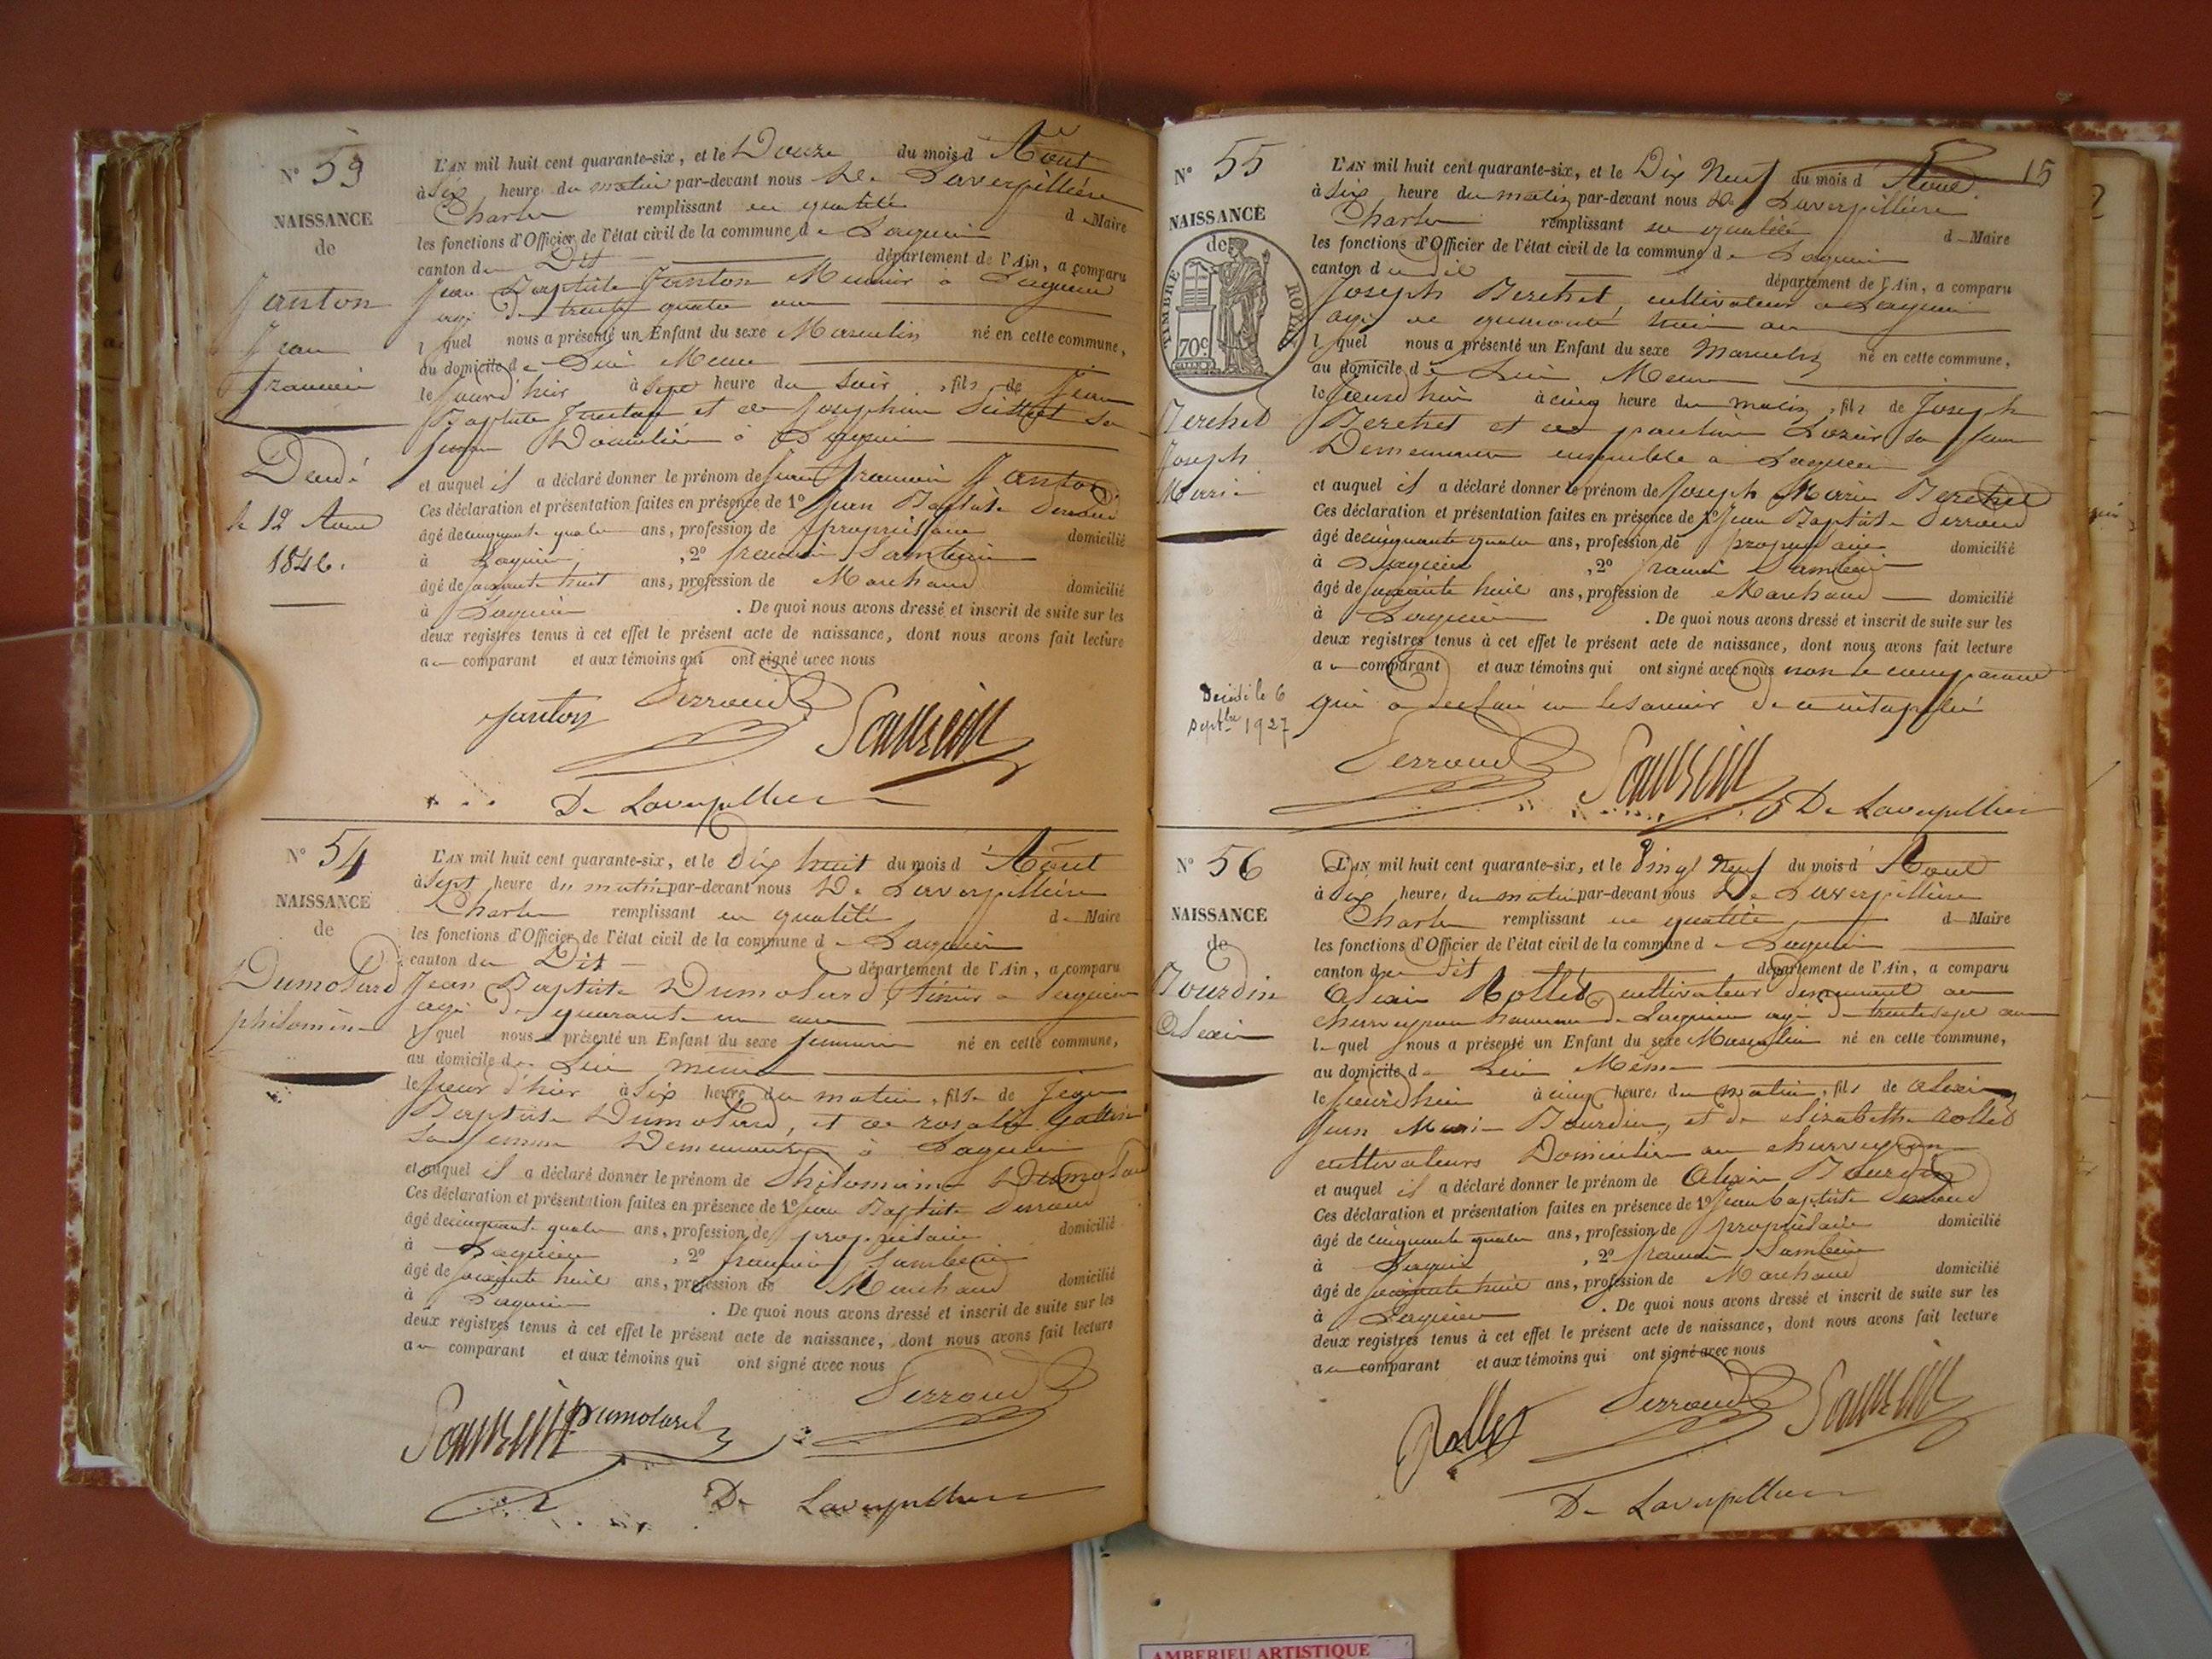 N° 53
NAISSANCE
de
Janton
Jean
françois
Décédé
le 12 Aout
1846.
L'AN mil huit cent quarante-six, et le Douze du mois d'Août
à Six heure du matin par-devant nous De Laverpillière
Charles remplissant en qualité de Maire
les fonctions d'Officier de l'état civil de la commune de Lagnieu
canton du Dit département de l'Ain, a comparu
Jean Baptiste Janton Meunier à Lagnieu
agé de trente quatre ans
lequel nous a présenté un Enfant du sexe Masculin né en cette commune,
au domicile de Lui Meme
le jour d'hier à Sept heure du Soir, fils de Jean
Baptiste Janton et de Josephine sa
femme Domiciliés à Lagnieu
et auquel il a déclaré donner le prénom de Jean françois Janton
Ces déclaration et présentation faites en présence de 1° Jean Baptiste Perroud
âgé de cinquante quatre ans, profession de propriétaire domicilié
à Lagnieu, 2° françois Sambein
âgé de soixante huit ans, profession de Marchand domicilié
à Lagnieu. De quoi nous avons dressé et inscrit de suite sur les
deux registres tenus à cet effet le présent acte de naissance, dont nous avons fait lecture
au comparant et aux témoins qui ont signé avec nous
Janton Perroud
De Laverpilliere
N° 54
NAISSANCE
de
Dumolard
philomine
L'AN mil huit cent quarante-six, et le Dix huit du mois d'Août
à Sept heure du matin par-devant nous De Laverpillière
Charles remplissant en qualité de Maire
les fonctions d'Officier de l'état civil de la commune de Lagnieu
canton du Dit département de l'Ain, a comparu
Jean Baptiste Dumolard à Lagnieu
agé de quarante un ans
lequel nous a présenté un Enfant du sexe feminin né en cette commune,
au domicile de Lui meme
le jour d'hier à Six heure du matin, fille de Jean
Baptiste Dumolard, et de rosalie
sa femme Demeurants à Lagnieu
et auquel il a déclaré donner le prénom de Philomine Dumolard
Ces déclaration et présentation faites en présence de 1° Jean Baptiste Perroud
âgé de cinquante quatre ans, profession de propriétaire domicilié
à Lagnieu, 2° françois Sambein
âgé de soixante huit ans, profession de Marchand domicilié
à Lagnieu. De quoi nous avons dressé et inscrit de suite sur les
deux registres tenus à cet effet le présent acte de naissance, dont nous avons fait lecture
au comparant et aux témoins qui ont signé avec nous
Dumolard Perroud
De Laverpilliere
15
N° 55
NAISSANCE
de
TIMBRE ROYAL
70c
Berchet
Joseph
Marie
Décédé le 6
Septbre 1927
L'AN mil huit cent quarante-six, et le Dix Neuf du mois d'Aout
à Six heure du matin par-devant nous De Laverpillière
Charles remplissant en qualité de Maire
les fonctions d'Officier de l'état civil de la commune de Lagnieu
canton du dit département de l'Ain, a comparu
Joseph Berchet, cultivateur à Lagnieu
agé de quarante huit ans
lequel nous a présenté un Enfant du sexe Masculin né en cette commune,
au domicile de Lui Meme
le jourd'hui à cinq heure du matin, fils de Joseph
Berchet et de pauline sa femme
Demeurant ensemble à Lagnieu
et auquel il a déclaré donner le prénom de Joseph Marie Berchet
Ces déclaration et présentation faites en présence de 1° Jean Baptiste Perroud
âgé de cinquante quatre ans, profession de propriétaire domicilié
à Lagnieu, 2° françois Sambein
âgé de soixante huit ans, profession de Marchand domicilié
à Lagnieu. De quoi nous avons dressé et inscrit de suite sur les
deux registres tenus à cet effet le présent acte de naissance, dont nous avons fait lecture
au comparant et aux témoins qui ont signé avec nous non le comparant
qui a declaré ne le savoir de ce interpellé
Perroud De Laverpilliere
N° 56
NAISSANCE
de
Bourdin
Alexis
L'AN mil huit cent quarante-six, et le Vingt Neuf du mois d'Aout
à Dix heures du matin par-devant nous De Laverpillière
Charles remplissant en qualité de Maire
les fonctions d'Officier de l'état civil de la commune de Lagnieu
canton du dit département de l'Ain, a comparu
Alexis Rollet, cultivateur demeurant au
charveyron hameau de Lagnieu agé de trente sept ans
lequel nous a présenté un Enfant du sexe Masculin né en cette commune,
au domicile de Lui Même
le jourd'hui à cinq heures du matin, fils de alexis
Jean Marie Bourdin, et de elisabeth Rollet
cultivateurs Domiciliés au charveyron
et auquel il a déclaré donner le prénom de Alexis Bourdin
Ces déclaration et présentation faites en présence de 1° Jean baptiste Perroud
âgé de cinquante quatre ans, profession de propriétaire domicilié
à Lagnieu, 2° françois Sambein
âgé de soixante huit ans, profession de Marchand domicilié
à Lagnieu. De quoi nous avons dressé et inscrit de suite sur les
deux registres tenus à cet effet le présent acte de naissance, dont nous avons fait lecture
au comparant et aux témoins qui ont signé avec nous
Rollet Perroud
De Laverpilliere
AMBERIEU ARTISTIQUE